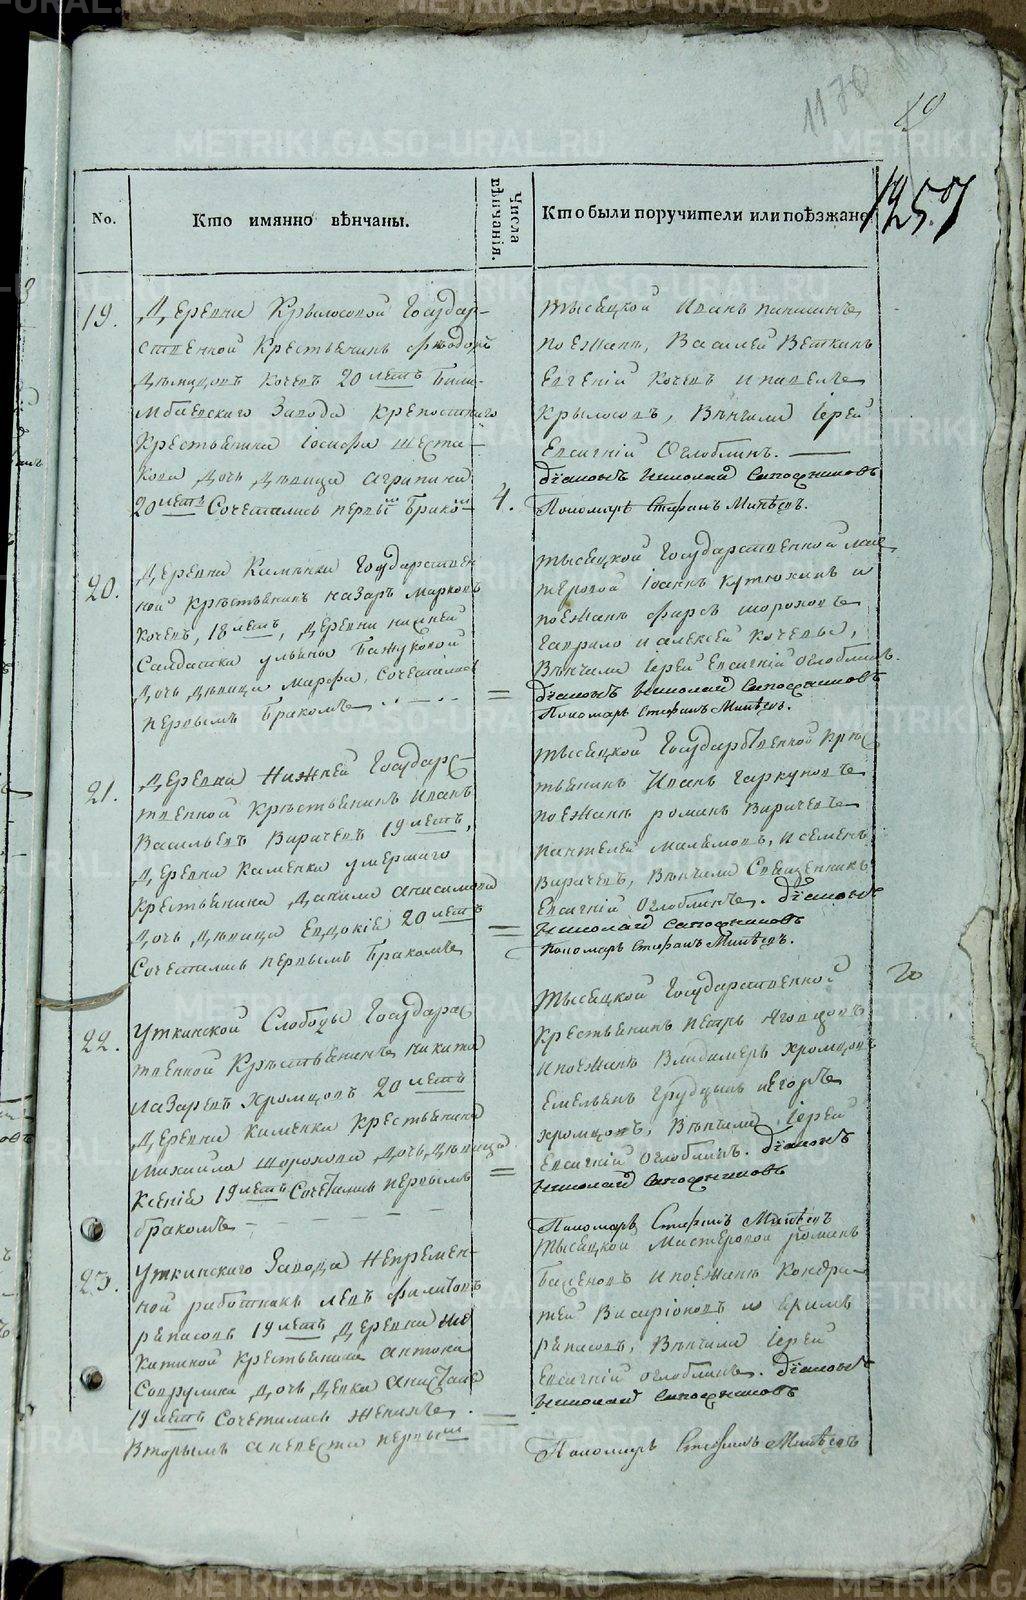 1178
19
1257
No.
Кто имянно вѣнчаны.
Числа вѣнчанія.
Кто были поручители или поѣзжане
19.
Деревни Крылосовой Государ-
ственной Крестьянинъ Фѣодоръ
Кочевъ 20 летъ Били-
мбаевскаго Завода крепостнаго
Крестьянина Іосифа Шеста-
кова дочь девица Агрипина
20 летъ Сочетались первы бракомъ
4.
тысяцкой Иванъ
поезжанѣ, Василей Веткинъ
Евгеній Кочевъ и павелъ
Крылосовъ, Вѣнчали Іерей
Евсигній Оглоблинъ.
діаконъ Николай Сапожниковъ
Пономарь Стефанъ Минѣевъ.
20.
Деревни Каменки Государствен
ной Крестьянинъ Назаръ Марковъ
Кочевъ, 18 летъ, деревни нижней
Салдатки ульяны Бажуковой
дочь девица Марфа, Сочетались
первымъ бракомъ
=
тысяцкой Государственной мас
теровой Іоаннъ Кутюхинъ и
поезжанѣ Фирсъ Шороховъ
Гаврило и алексей Кочевы,
Вѣнчали Іерей Евсигній Оглоблинъ.
діаконъ Николай Сапожниковъ
Пономарь Стефанъ Минѣевъ.
21.
Деревни Нижней Государс-
твенной Крестьянинъ Иванъ
Васильевъ Вирачевъ 19 летъ,
деревни Каменки умершаго
крестьянина Данила анисимова
дочь девица Евдокія 20 летъ
Сочетались первымъ бракомъ
=
тысяцкой Государственной крес
тьянинъ Иванъ Гаркуновъ
поезжанѣ романъ Вирачевъ
пантелей, и семенъ
Вирачевъ, Вѣнчали Священникъ
Евсигній Оглоблинъ. діаконъ
Николай Сапожниковъ
Пономарь Стефанъ Минѣевъ.
20
22.
Уткинской Слободы Государс
твенной Крестьянинъ никита
Лазаревъ Хромцовъ 20 летъ
деревни Каменки Крестьянина
Михайла Шорохова дочь девица
Ксенія 19 летъ Сочетались первымъ
бракомъ
=
тысяцкой Государственной
крестьянинъ петръ
и поезжанѣ Владимеръ хромцовъ
Емельянъ Грудцынъ и Егоръ
хромцовъ, Вѣнчали Іерей
Евсигній Оглоблинъ. діаконъ
Николай Сапожниковъ
Пономарь Стефанъ Минѣевъ
23.
Уткинскаго Завода Непремен-
ной работникъ левъ Филиповъ
19 летъ деревни Не
китиной крестьянина антона
дочь девка
19 летъ сочетались женихъ
Вторымъ а невеста первым
=
тысяцкой Мастеровой романъ
и поезжанѣ Кондра-
тей и
Вѣнчали Іерей
Евсигній Оглоблинъ. діаконъ
Николай Сапожниковъ
Пономарь Стефанъ Минѣевъ
METRIKI.GASO-URAL.RU